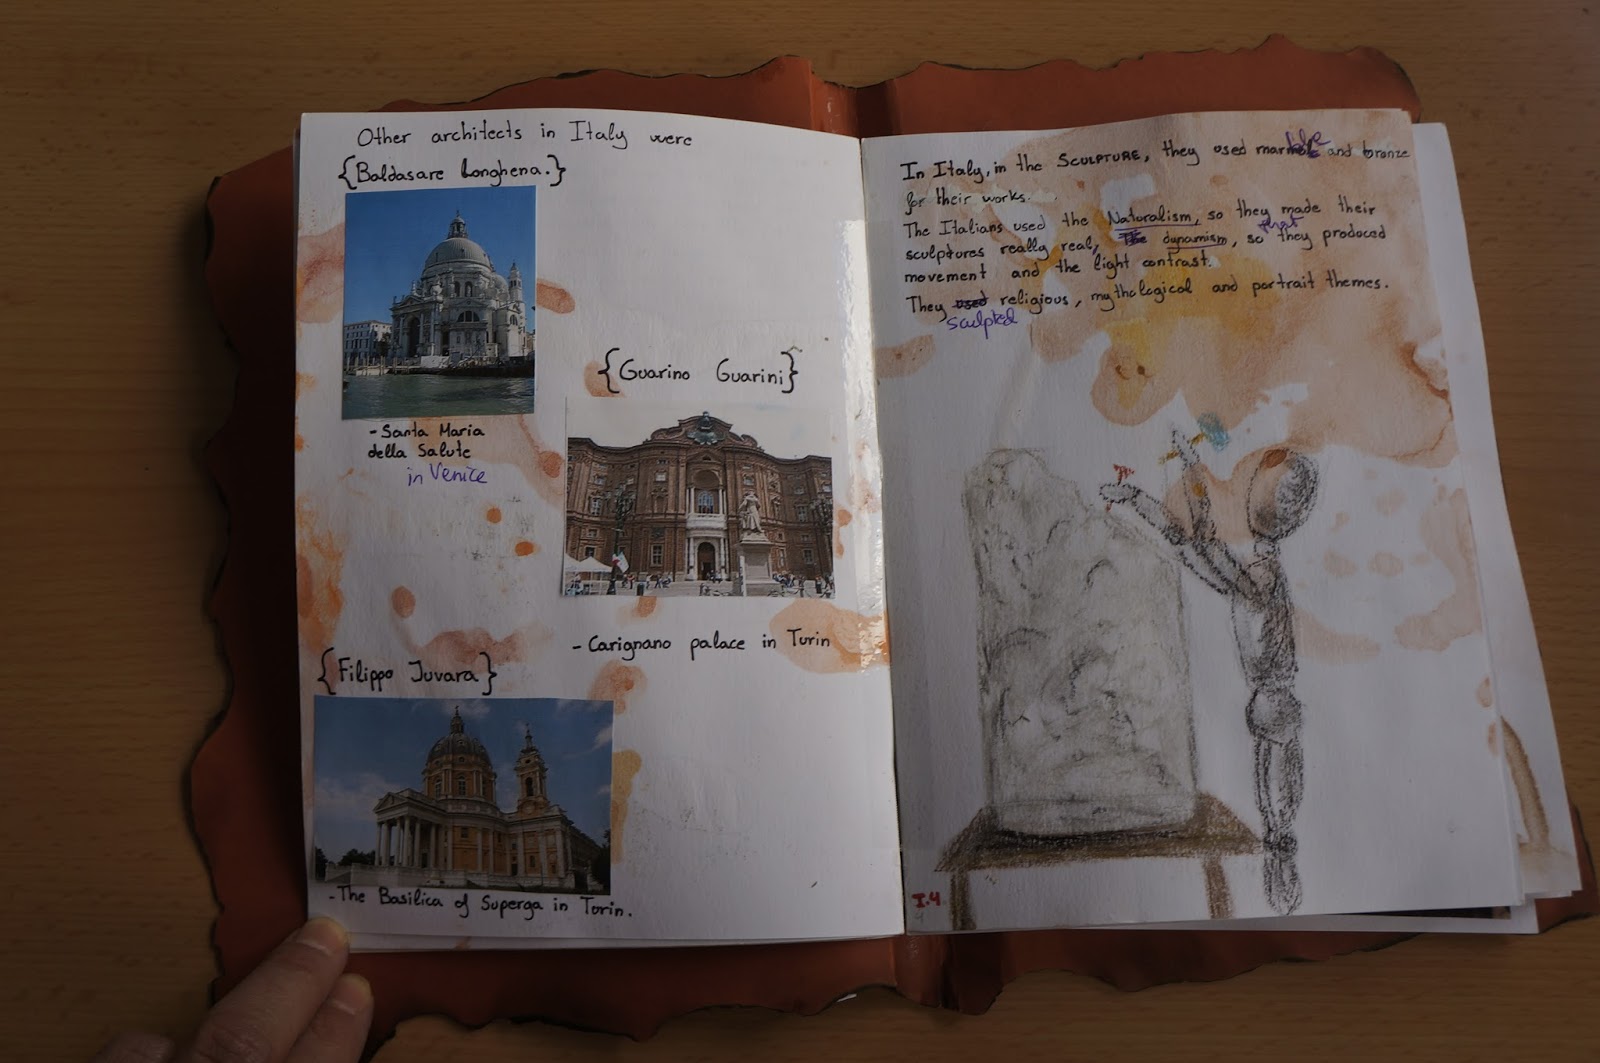 Other architects in Italy were
{Baldasare Longhena.}
- Santa Maria
della Salute
in Venice
{Guarino Guarini}
- Carignano palace in Turin
{Filippo Juvara}
- The Basilica of Superga in Torin.
In Italy, in the SCULPTURE, they used marmble and bronze
for their works.
The Italians used the Naturalism, so they made their
sculptures really real, The dynamism, so that they produced
movement and the light contrast.
They used religious, mythological and portrait themes.
sculpted
I.4
4